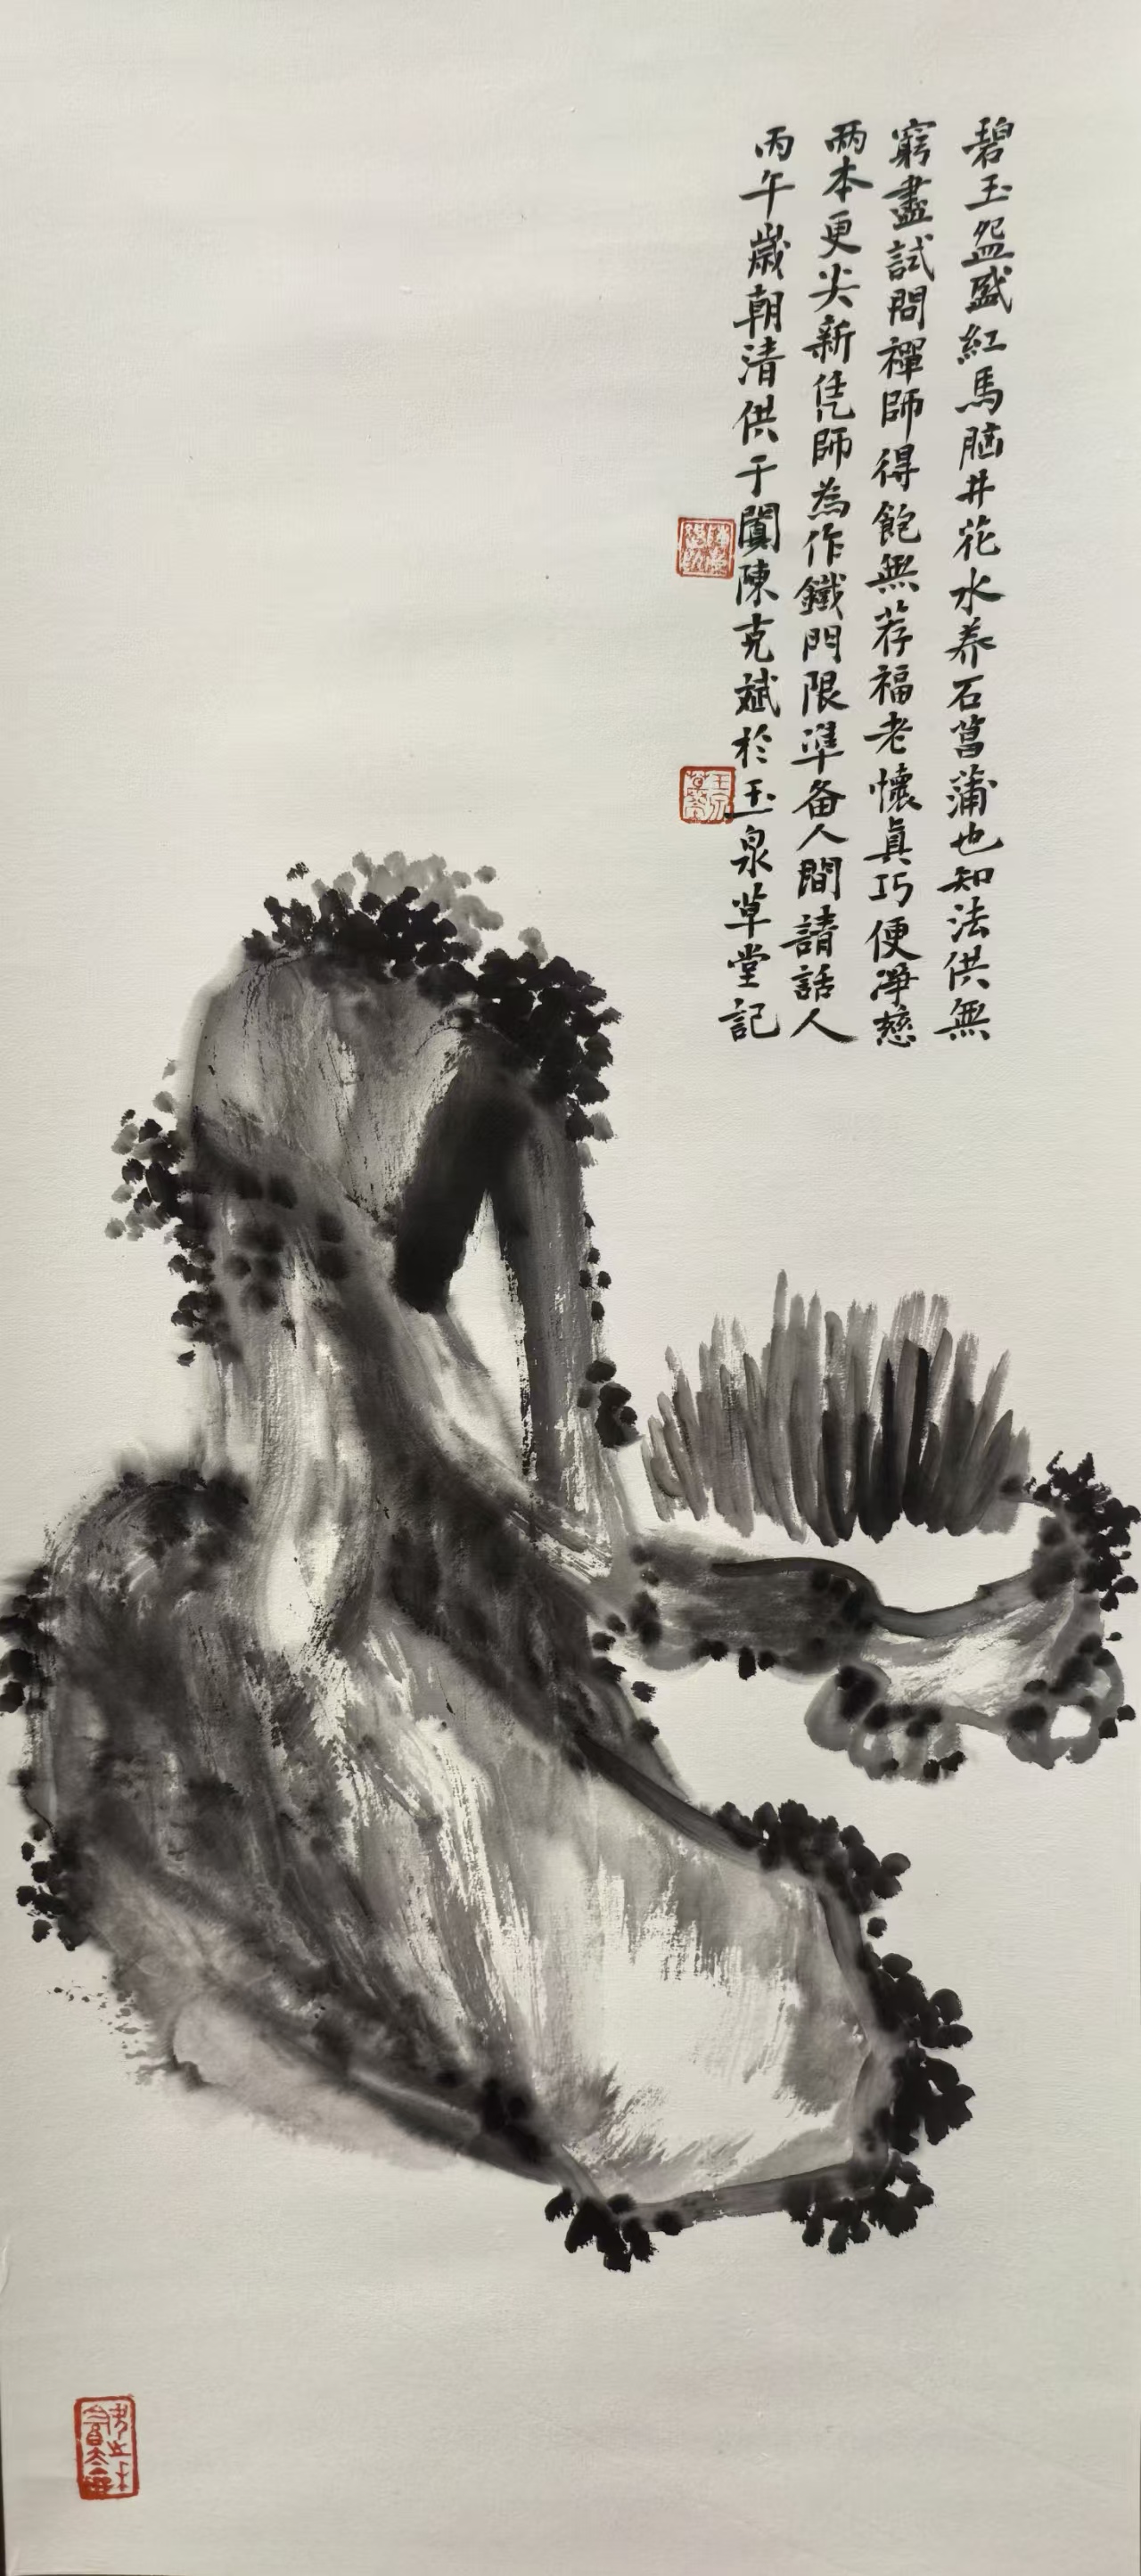 碧玉盌盛紅馬脑井花水养石菖蒲也知法供無
窮盡試問禪師得飽無荐福老懷真巧便淨慈
兩本更尖新凭師為作鐵門限準备人間請話人
丙午歲朝清供于闐陳克斌於玉泉草堂記